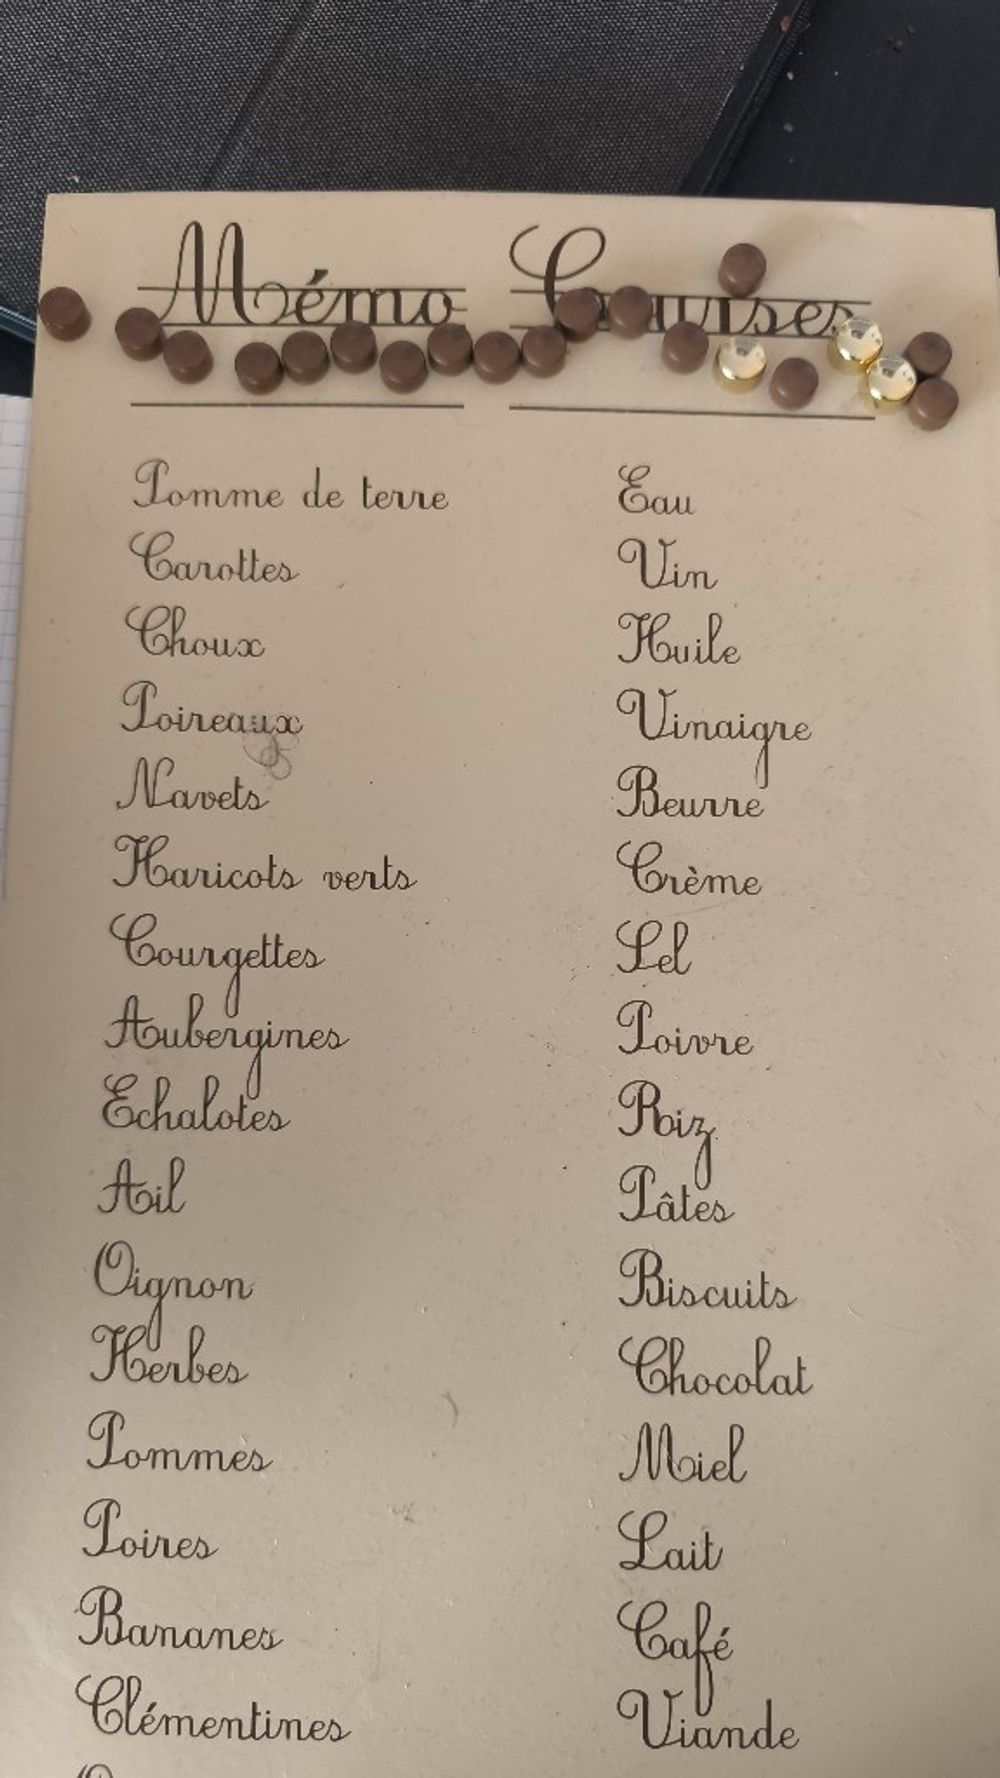 Mémo Courses
Pomme de terre
Carottes
Choux
Poireaux
Navets
Haricots verts
Courgettes
Aubergines
Echalotes
Ail
Oignon
Herbes
Pommes
Poires
Bananes
Clémentines
Eau
Vin
Huile
Vinaigre
Beurre
Crème
Sel
Poivre
Riz
Pâtes
Biscuits
Chocolat
Miel
Lait
Café
Viande